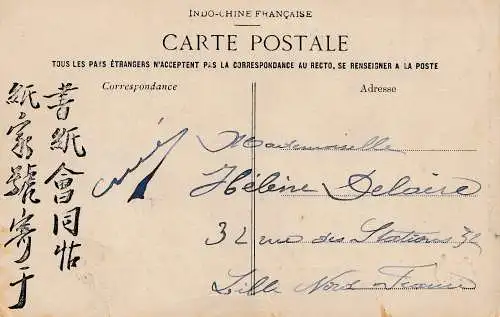 INDO-CHINE FRANÇAISE
CARTE POSTALE
TOUS LES PAYS ÉTRANGERS N'ACCEPTENT PAS LA CORRESPONDANCE AU RECTO, SE RENSEIGNER A LA POSTE
Correspondance
Adresse
書紙會同帖
紙家號寄于
Mademoiselle
Hélène Delaire
32 rue des Stations 32
Lille Nord France